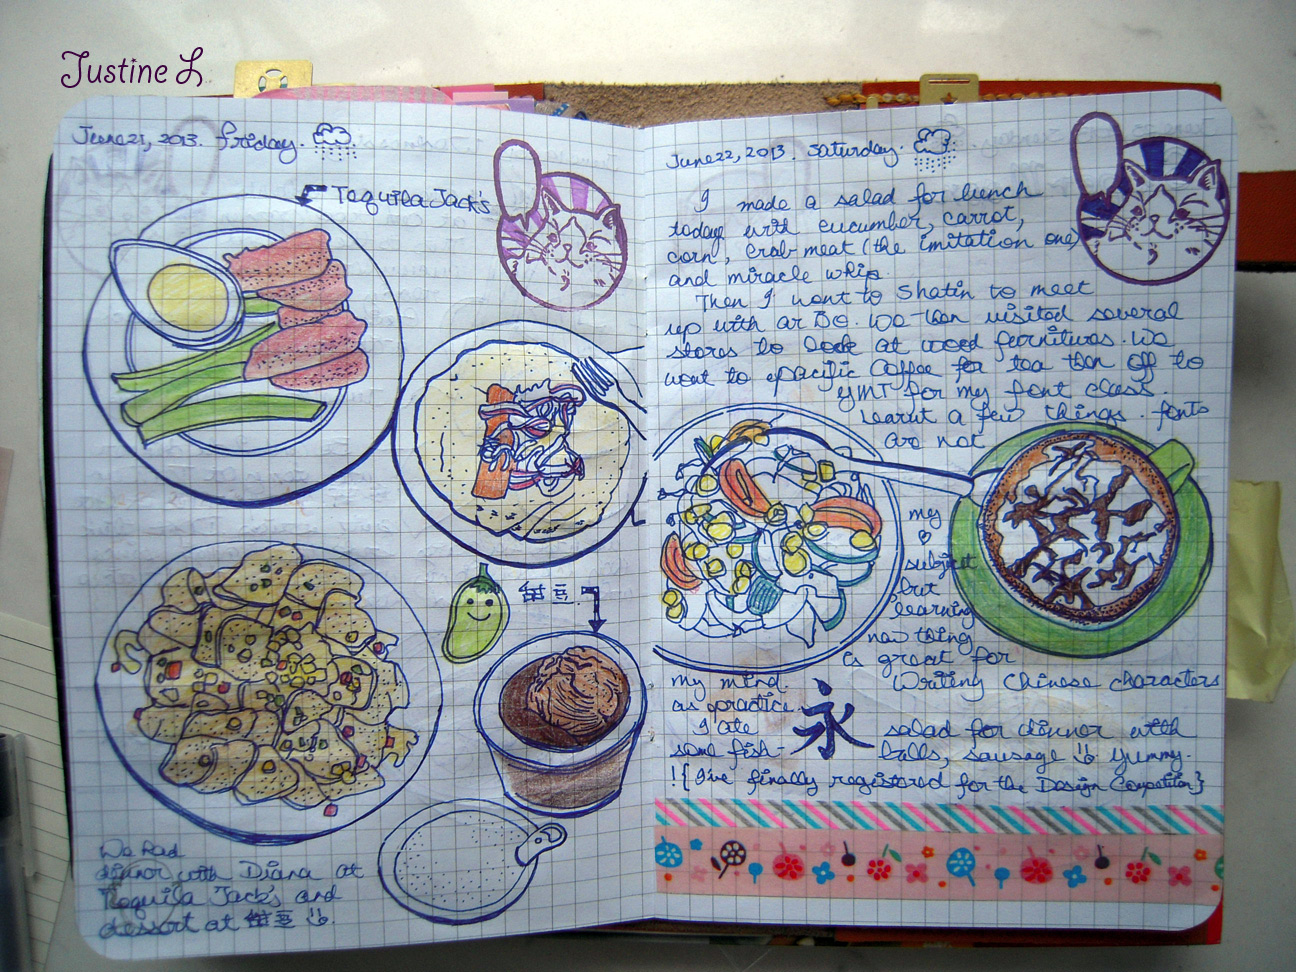 Justine L
June 21, 2013. friday.
Tequila Jack's
豆
We had
dinner with Diana at
Tequila Jack's and
dessert at 豆
June 22, 2013. saturday.
I made a salad for lunch
today with cucumber, carrot,
corn, crab meat (the imitation one)
and miracle whip.
Then I went to Shatin to meet
up with We then visited several
stores to look at wood furnitures. We
went to pacific Coffee for tea then off to
YMT for my font class.
learnt a few things. fonts
are not
my
subject
but
learning
new thing
is great for
my mind. Writing Chinese characters
as practice.
永
I ate salad for dinner with
some fish-balls, sausage yummy.
! {I've finally registered for the Design Competition}